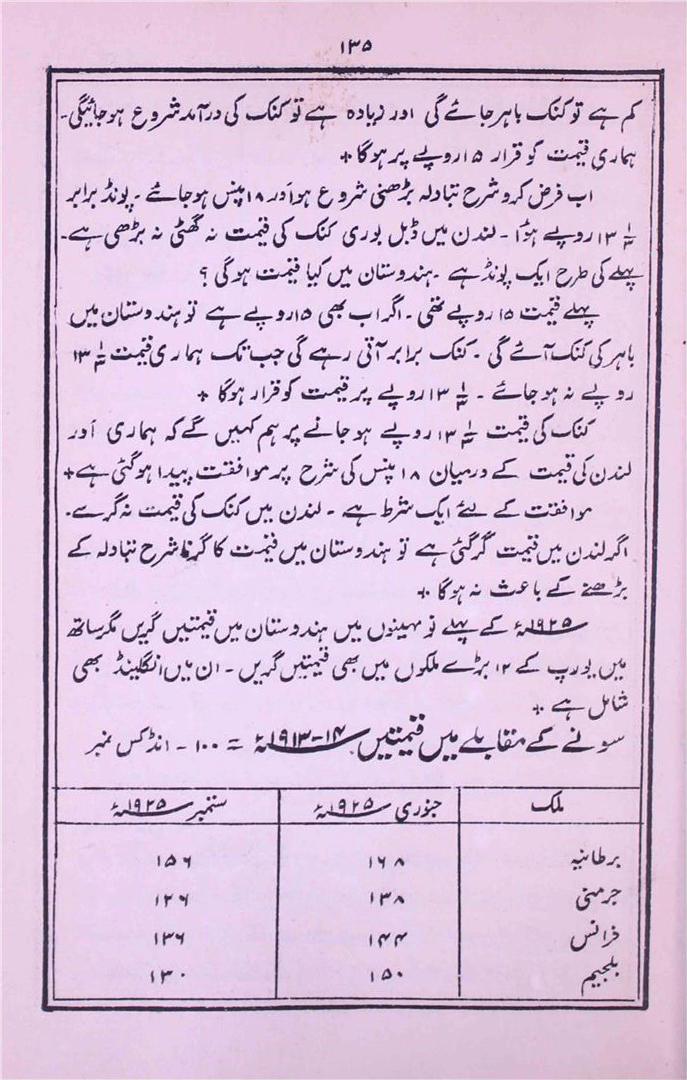 ۱۳۵
کم ہے تو کنک باہر جائے گی اور زیادہ ہے تو کنک کی درآمد شروع ہو جائیگی۔
ہماری قیمت کو قرار ۱۵ روپے پر ہوگا +
اب فرض کرو شرح تبادلہ بڑھنی شروع ہو اور ۱۸ پنس ہو جائے۔ پونڈ برابر
۱۳ ۱/۳ روپے ہؤا۔ لندن میں ڈبل بوری کنک کی قیمت نہ گھٹی نہ بڑھی ہے۔
پہلے کی طرح ایک پونڈ ہے۔ ہندوستان میں کیا قیمت ہوگی ؟
پہلے قیمت ۱۵ روپے تھی۔ اگر اب بھی ۱۵ روپے ہے تو ہندوستان میں
باہر کی کنک آئے گی۔ کنک برابر آتی رہے گی جب تک ہماری قیمت ۱۳ ۱/۳
روپے نہ ہو جائے۔ ۱۳ ۱/۳ روپے پر قیمت کو قرار ہوگا +
کنک کی قیمت ۱۳ ۱/۳ روپے ہو جانے پر ہم کہیں گے کہ ہماری اور
لندن کی قیمت کے درمیان ۱۸ پنس کی شرح پر موافقت پیدا ہوگئی ہے +
موافقت کے لئے ایک شرط ہے۔ لندن میں کنک کی قیمت نہ گرے۔
اگر لندن میں قیمت گر گئی ہے تو ہندوستان میں قیمت کا گرنا شرح تبادلہ کے
بڑھنے کے باعث نہ ہوگا +
۱۹۲۵ء کے پہلے نو مہینوں میں ہندوستان میں قیمتیں گریں مگر ساتھ
میں یورپ کے ۱۲ بڑے ملکوں میں بھی قیمتیں گریں۔ ان میں انگلینڈ بھی
شامل ہے +
سونے کے مقابلے میں قیمتیں۔ ۱۴-۱۹۱۳ء = ۱۰۰ - انڈکس نمبر
ملک جنوری ۱۹۲۵ء ستمبر ۱۹۲۵ء
برطانیہ ۱۶۸ ۱۵۶
جرمنی ۱۳۸ ۱۲۶
فرانس ۱۴۴ ۱۳۶
بلجیم ۱۵۰ ۱۳۰